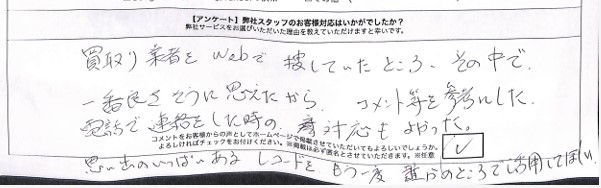 【アンケート】弊社スタッフのお客様対応はいかがでしたか？
弊社サービスをお選びいただいた理由を教えていただけますと幸いです。
買取り業者をWebで捜していたところ、その中で、
一番良さそうに思えたから、コメント等を参考にした。
電話で連絡をした時の対応もよかった。
コメントをお客様からの声としてホームページで掲載させていただいてもよろしいでしょうか。
よろしければチェックをお付けください。※掲載は必ず匿名とさせていただきます。※任意
思い出のいっぱいあるレコードを、もう一度誰かのところで活用してほしい。